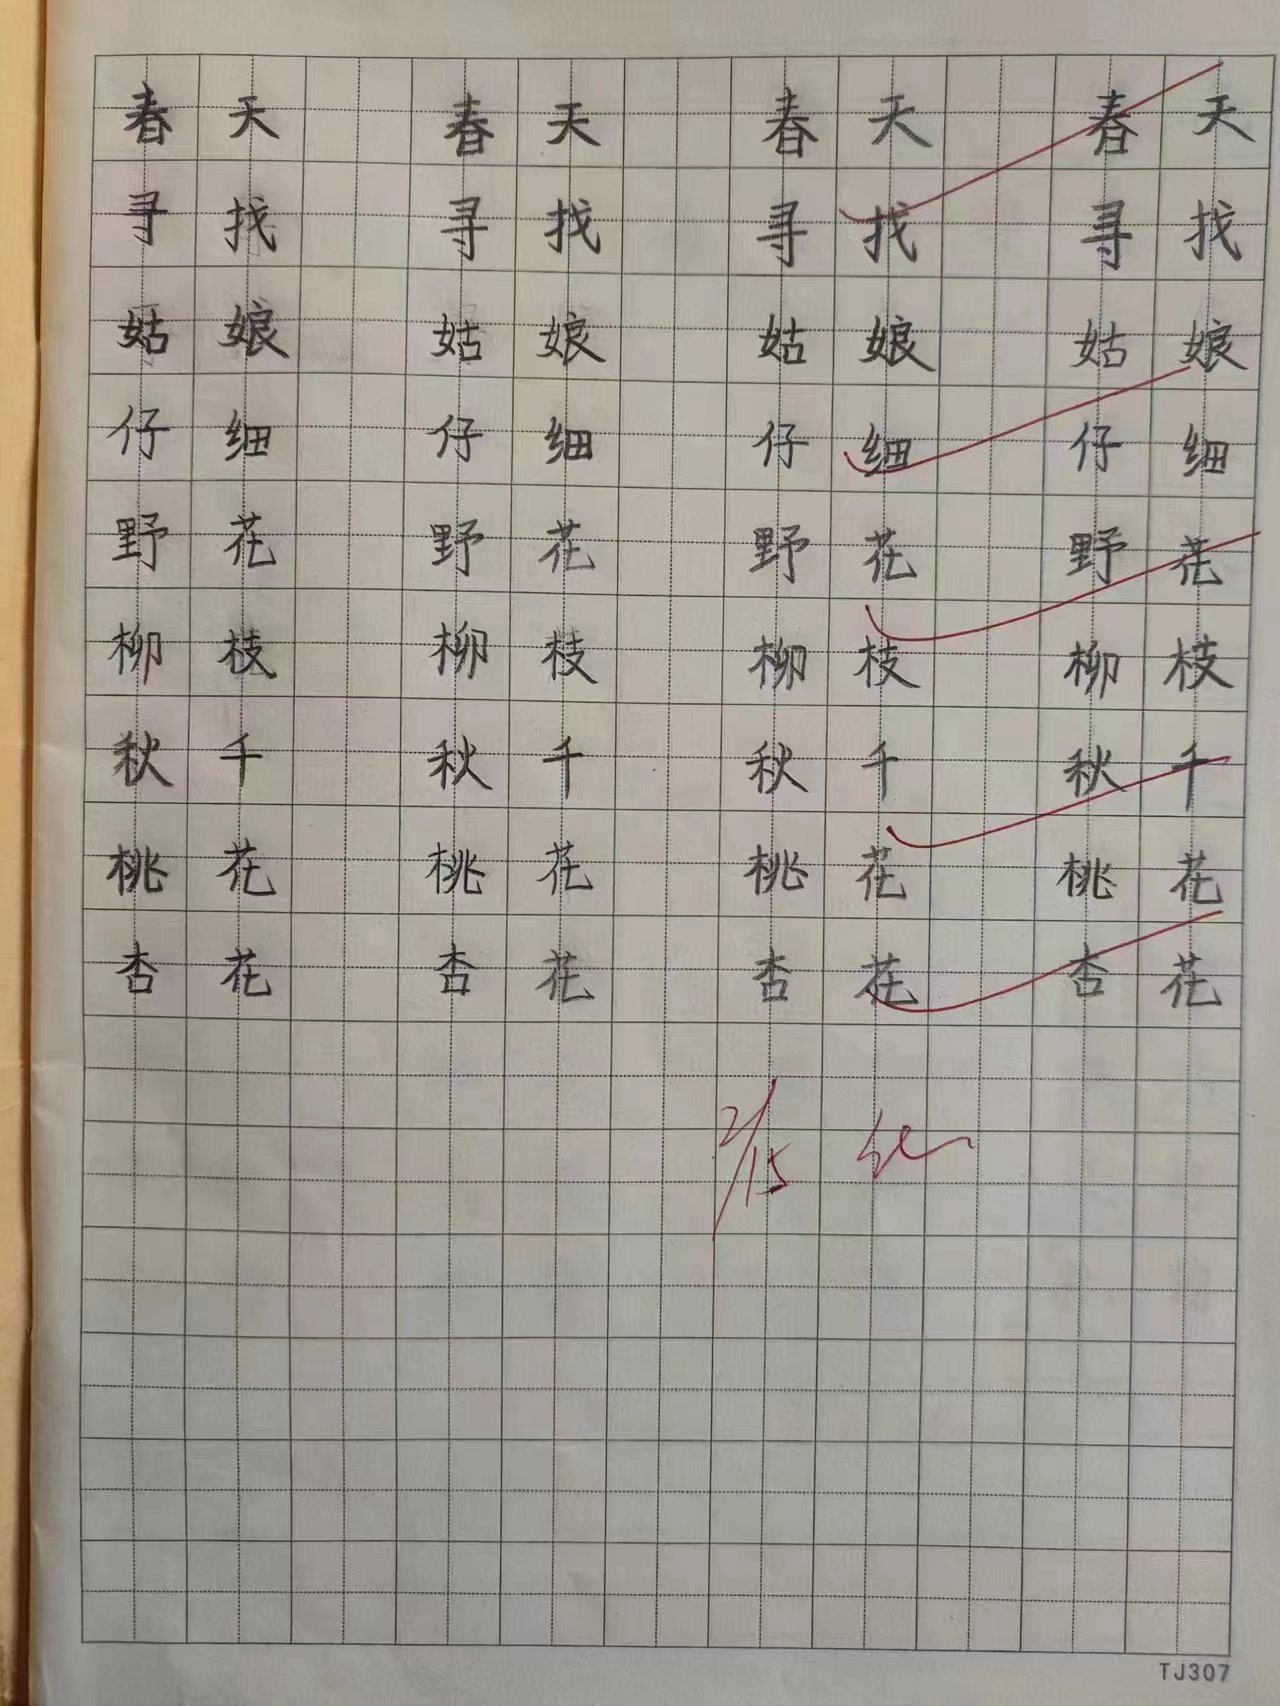 春天 春天 春天 春天
寻找 寻找 寻找 寻找
姑娘 姑娘 姑娘 姑娘
仔细 仔细 仔细 仔细
野花 野花 野花 野花
柳枝 柳枝 柳枝 柳枝
秋千 秋千 秋千 秋千
桃花 桃花 桃花 桃花
杏花 杏花 杏花 杏花
2/15
TJ307